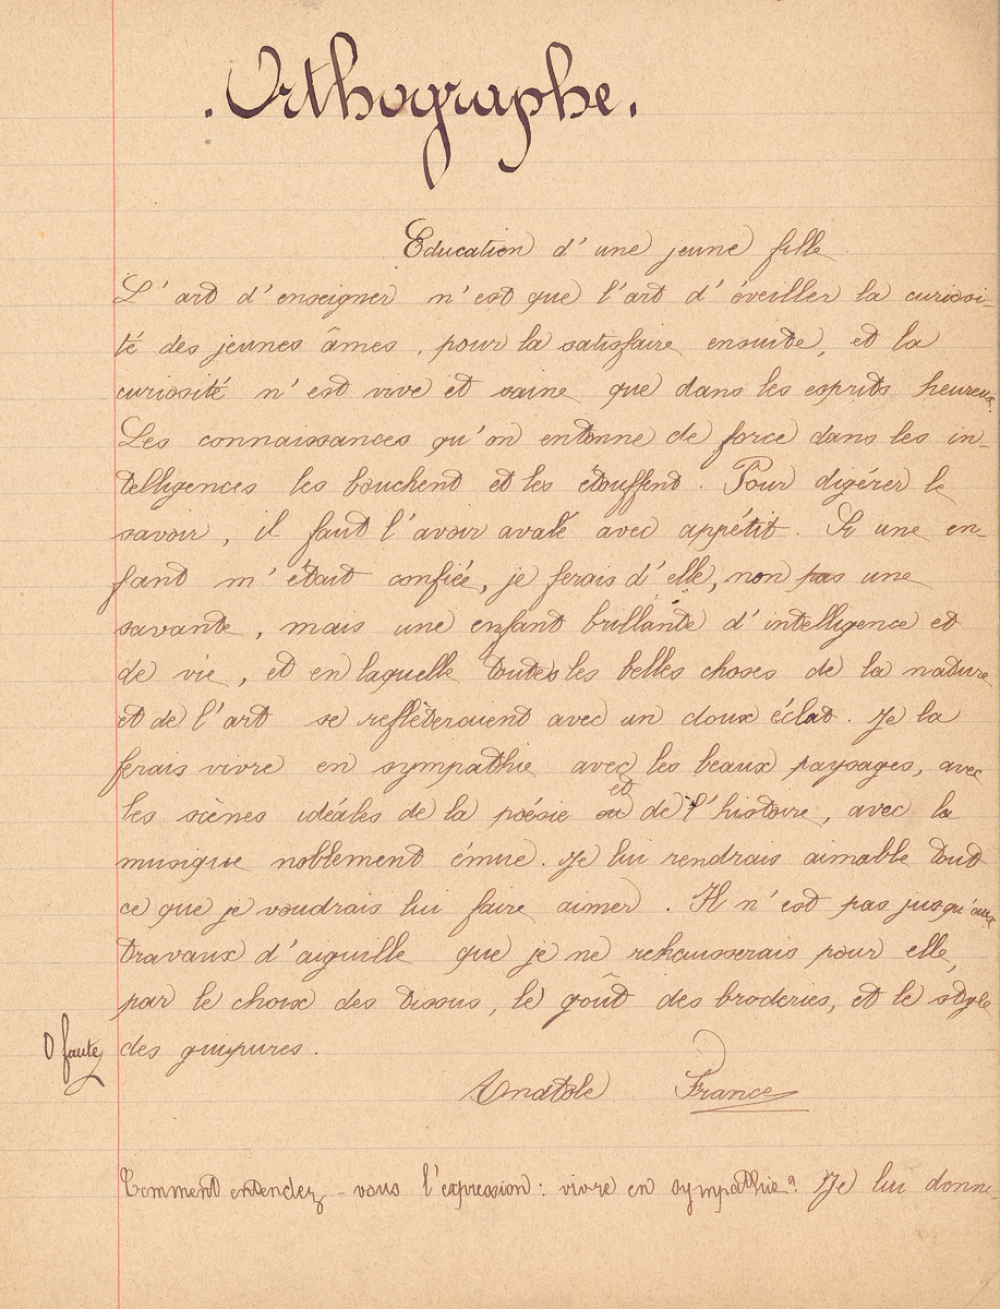 . Orthographe.
Education d'une jeune fille
L'art d'enseigner n'est que l'art d'éveiller la curiosi-
té des jeunes âmes, pour la satisfaire ensuite, et la
curiosité n'est vive et saine que dans les esprits heureux.
Les connaissances qu'on entonne de force dans les in-
telligences les bouchent et les étouffent. Pour digérer le
savoir, il faut l'avoir avalé avec appétit. Si une en-
fant m'était confiée, je ferais d'elle, non pas une
savante, mais une enfant brillante d'intelligence et
de vie, et en laquelle toutes les belles choses de la nature
et de l'art se reflèteraient avec un doux éclat. Je la
ferais vivre en sympathie avec les beaux paysages, avec
les scènes idéales de la poésie et de l'histoire, avec la
musique noblement émue. Je lui rendrais aimable tout
ce que je voudrais lui faire aimer. Il n'est pas jusqu'aux
travaux d'aiguille que je ne rehausserais pour elle,
par le choix des tissus, le goût des broderies, et le style
0 faute des guipures.
Anatole France
Comment entendez-vous l'expression: vivre en sympathie? Je lui donne-